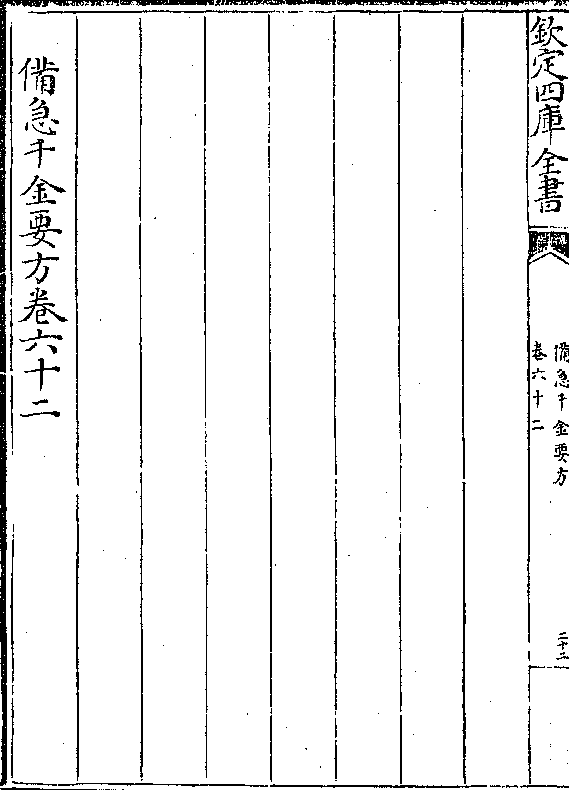 欽定四庫全書
備急千金要方
卷六十二
二十二
備急千金要方卷六十二